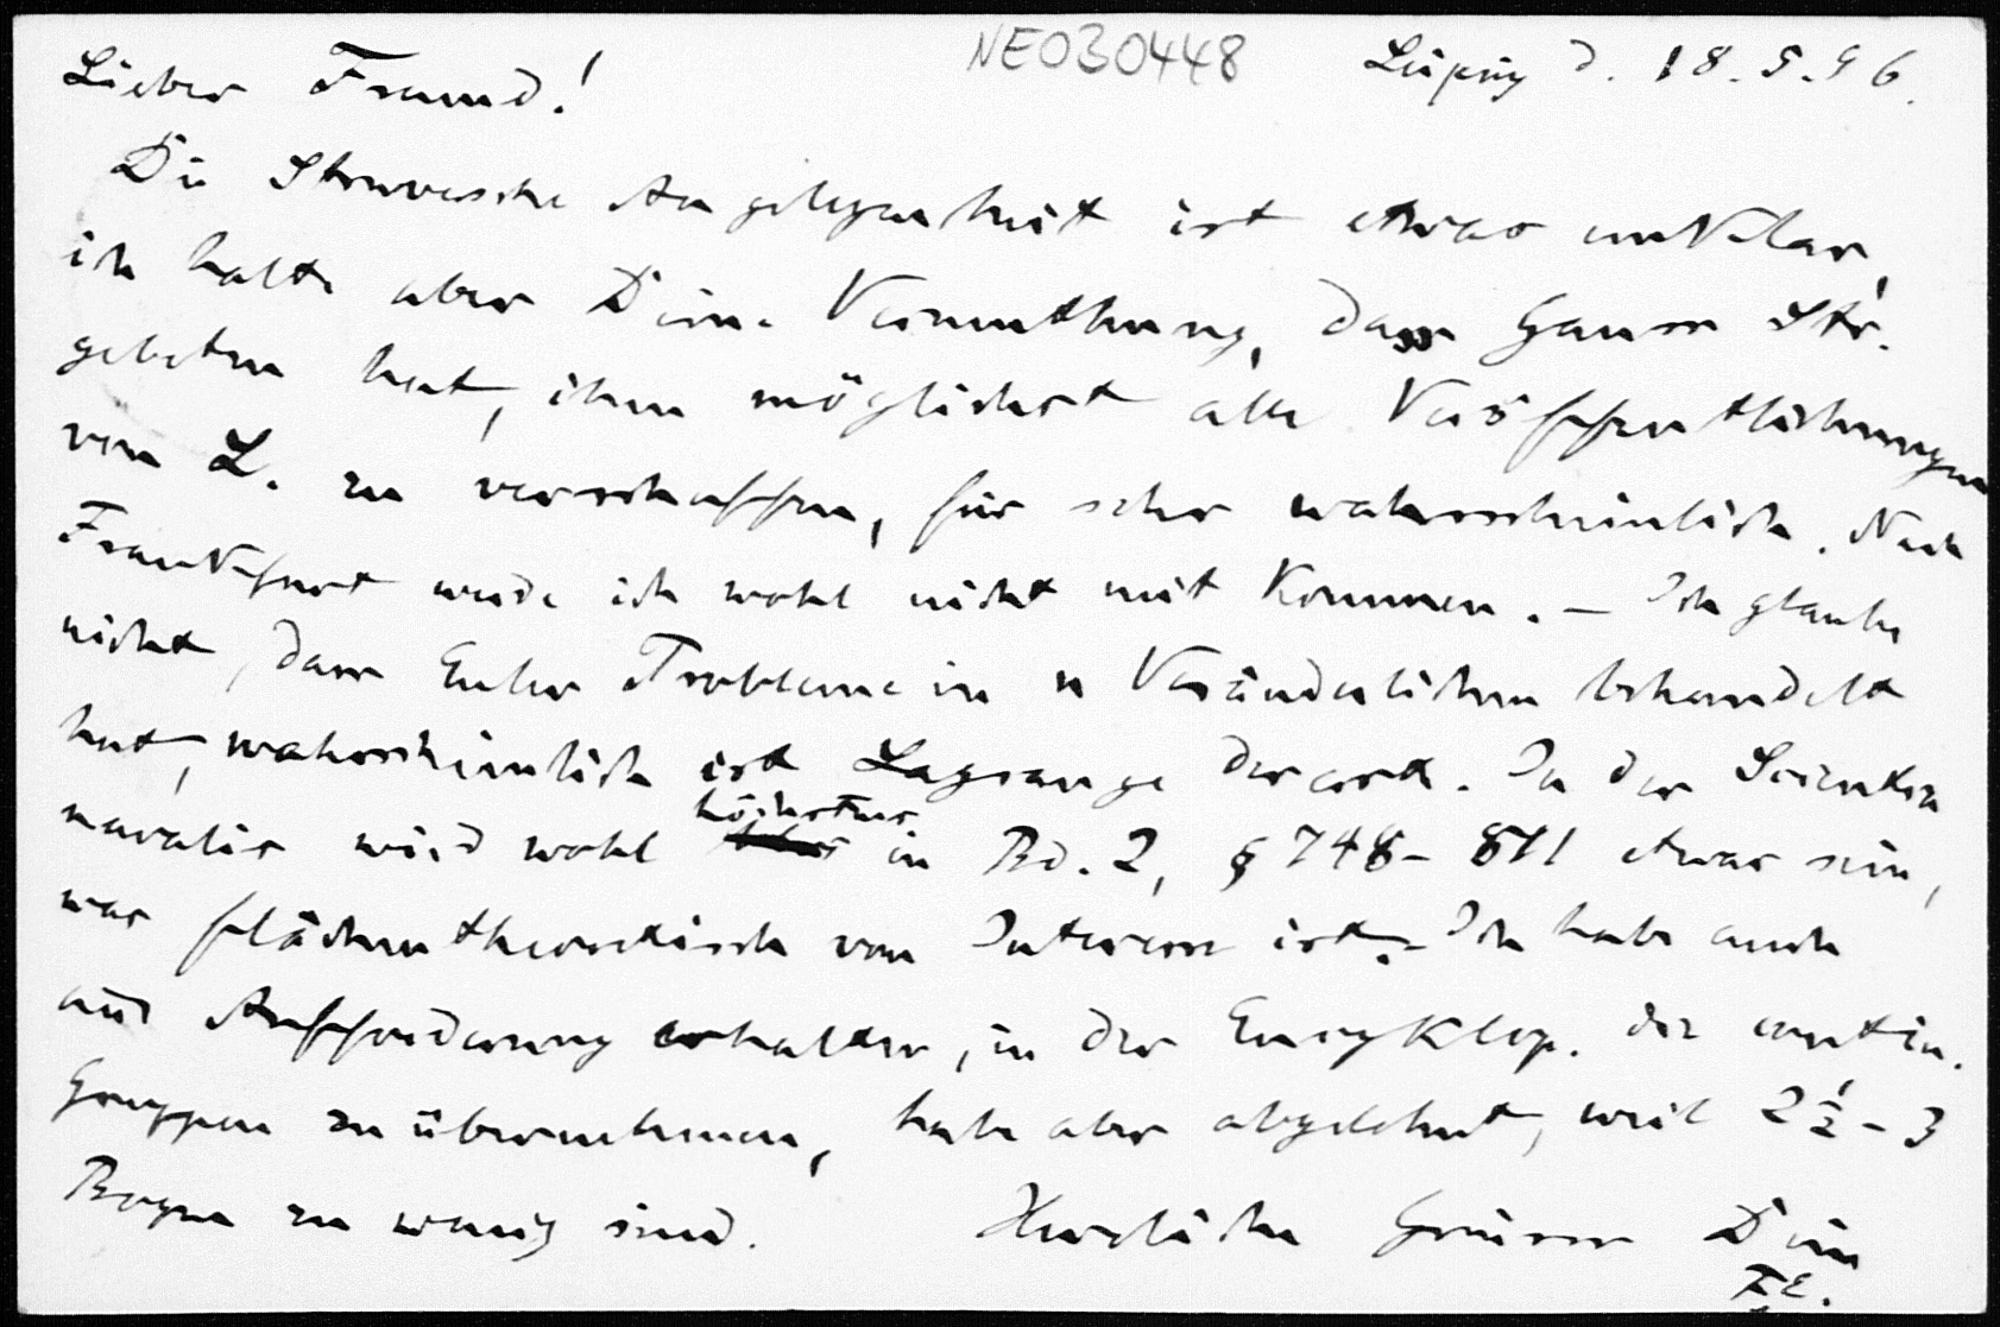 NE030448
Leipzig d. 18.5.96.
Lieber Freund!
Die Struvesche Angelegenheit ist etwas unklar,
ich halte aber Deine Vermuthung, dass Gauss Str.
gebeten hat, ihm möglichst alle Veröffentlichungen
von L. zu verschaffen, für sehr wahrscheinlich. Nach
Frankfurt werde ich wohl nicht mit kommen. – Ich glaube
nicht, dass Euler Probleme in n Veränderlichen behandelt
hat, wahrscheinlich ist Lagrange der erste. In der Scientia
navalis wird wohl höchstens in Bd. 2, § 748–871 etwas sein,
was flächentheoretisch von Interesse ist. – Ich habe auch
eine Aufforderung erhalten, in der Encyklop. die contin.
Gruppen zu übernehmen, habe aber abgelehnt, weil 2½–3
Bogen zu wenig sind. Herzliche Grüsse Dein
FE.